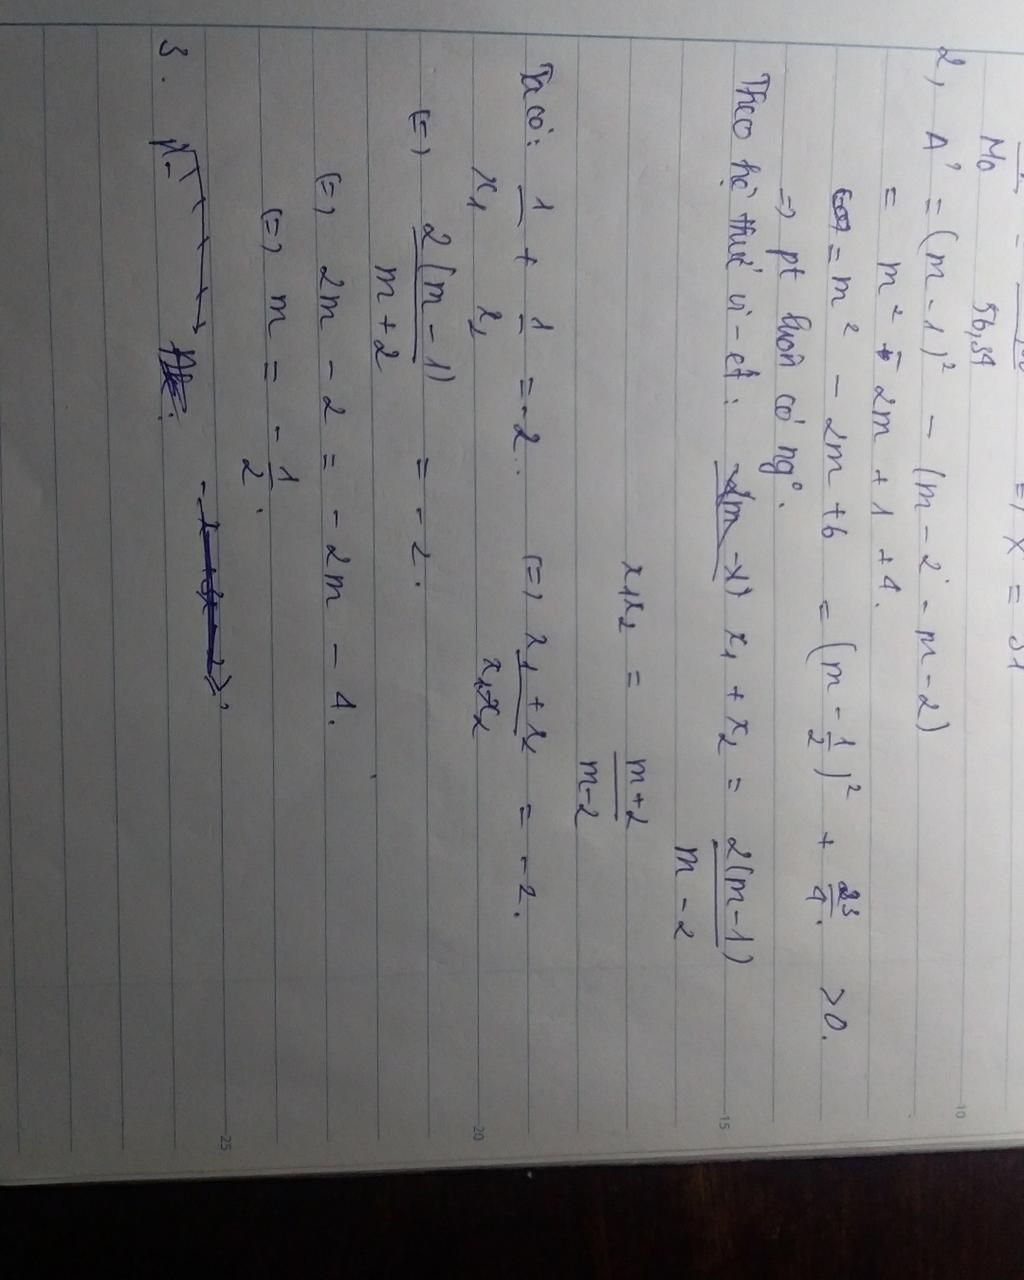 M₀ 56,34 <=> X = 31
2, Δ' = (m - 1)² - (m - 2 - m - 2)
= m² - 2m + 1 + 4.
= m² - 2m + 6 = (m - 1/2)² + 23/4. > 0.
=> pt luôn có ng⁰.
Theo hệ thức vi-et: x₁ + x₂ = 2(m-1)/m - 2
x₁x₂ = m+2/m-2
Ta có: 1/x₁ + 1/x₂ = -2. <=> x₁ + x₂/x₁x₂ = -2.
<=> 2(m - 1)/m + 2 = -2.
<=> 2m - 2 = -2m - 4.
<=> m = -1/2.
3.
10
15
20
25